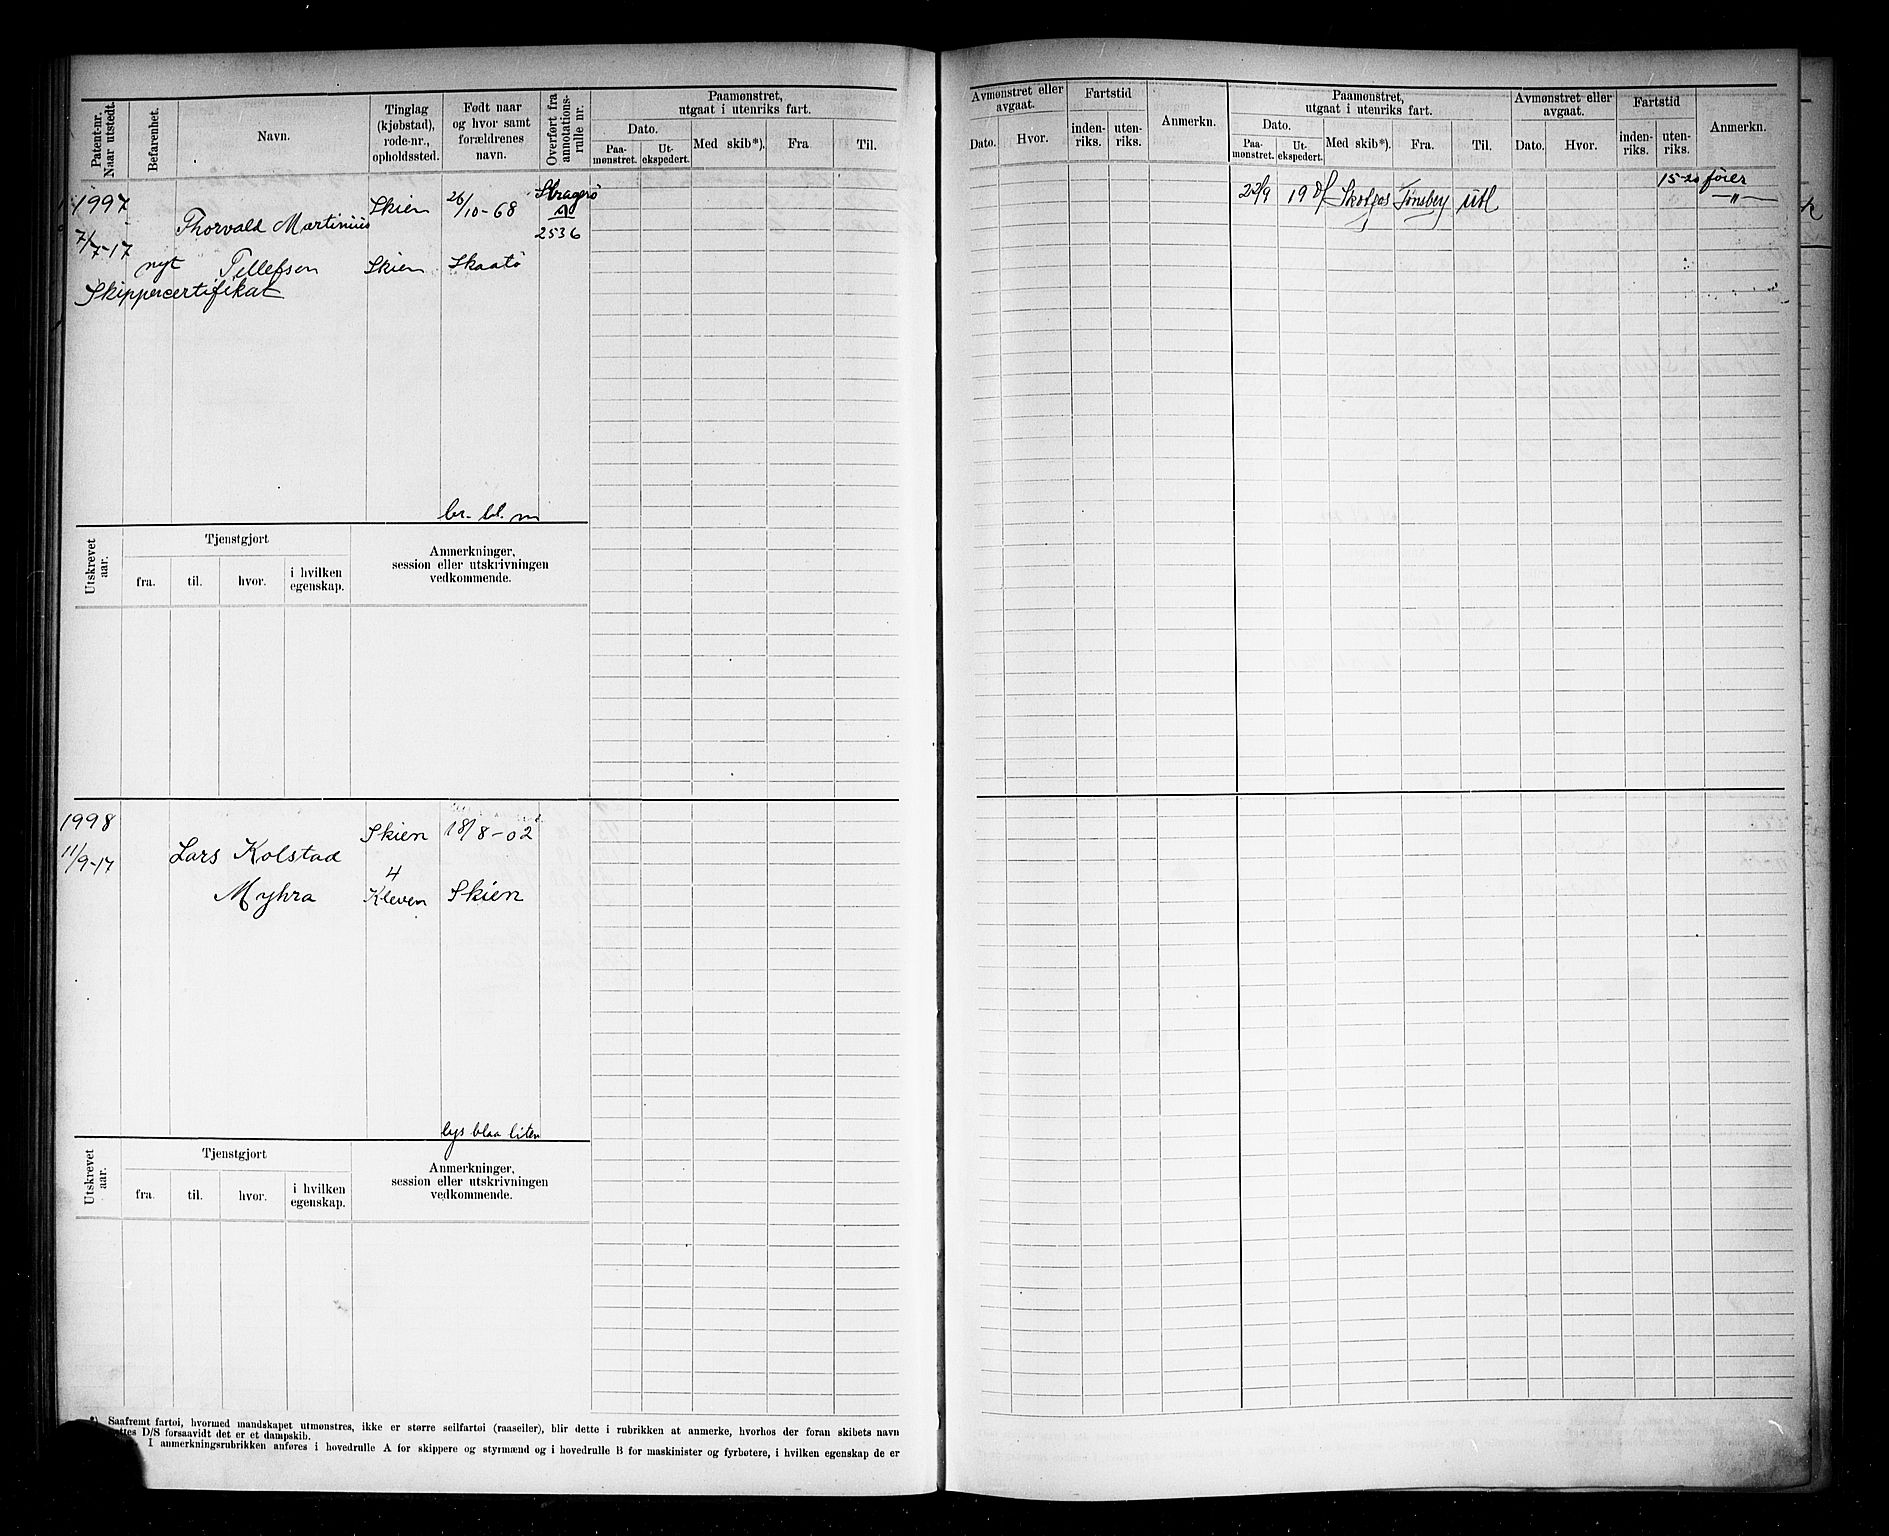 Patent-nr. Naar utstedt.
Befarenhet.
Navn.
Tinglag (kjøbstad), rode-nr., opholdssted.
Født naar og hvor samt forældrenes navn.
Overført fra annotations-rulle nr.
Paamønstret, utgaat i utenriks fart.
Dato.
Paa-mønstret.
Ut-ekspedert.
Med skib*).
Fra.
Til.
Avmønstret eller avgaat.
Dato.
Hvor.
Fartstid
inden-riks.
uten-riks.
Anmerkn.
Paamønstret, utgaat i utenriks fart.
Dato.
Paa-mønstret.
Ut-ekspedert.
Med skib*).
Fra.
Til.
Avmønstret eller avgaat.
Dato.
Hvor.
Fartstid
inden-riks.
uten-riks.
Anmerkn.
1997
7/7-17
nyt
Skippercertifikat
Thorvald Martinius
Tellefsen
Skien
Skien
26/10-68
Skaatø
2536
22/9 19 Tønsberg utl
15-20 fører
"
br. bl. m
Utskrevet aar.
Tjenstgjort
fra.
til.
hvor.
i hvilken egenskap.
Anmerkninger,
session eller utskrivningen
vedkommende.
1998
11/9-17
Lars Kolstad
Myhra
Skien
4
Kleven
18/8-02
Skien
lys blaa liten
Utskrevet aar.
Tjenstgjort
fra.
til.
hvor.
i hvilken egenskap.
Anmerkninger,
session eller utskrivningen
vedkommende.
*) Saafremt fartøi, hvormed mandskapet utmønstres, ikke er større seilfartøi (raaseiler), blir dette i rubrikken at anmerke, hvorhos der foran skibets navn
D/S forsaavidt det er et dampskib.
I anmerkningsrubrikken anføres i hovedrulle A for skippere og styrmænd og i hovedrulle B for maskinister og fyrbøtere, i hvilken egenskap de er